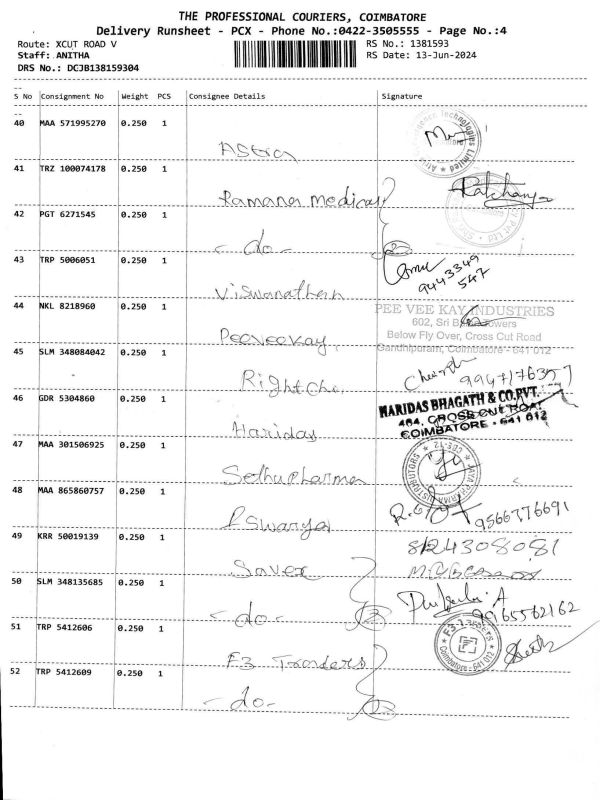 THE PROFESSIONAL COURIERS, COIMBATORE
Delivery Runsheet - PCX - Phone No.:0422-3505555 - Page No.:4
Route: XCUT ROAD V RS No.: 1381593
Staff: ANITHA RS Date: 13-Jun-2024
DRS No.: DCJB138159304
S No Consignment No Weight PCS Consignee Details Signature
40 MAA 571995270 0.250 1
Astra
41 TRZ 100074178 0.250 1
Ramana Medical
42 PGT 6271545 0.250 1
- do -
43 TRP 5006051 0.250 1
9443349
547
Viswanathan
44 NKL 8218960 0.250 1
PEE VEE KAY INDUSTRIES
602, Sri Towers
Peeveekay
Below Fly Over, Cross Cut Road
Gandhipuram, Coimbatore - 641 012
45 SLM 348084042 0.250 1
Right Che
46 GDR 5304860 0.250 1
HARIDAS BHAGATH & CO.PVT.
464, CROSS CUT ROAD
COIMBATORE - 641 012
Haridas
47 MAA 301506925 0.250 1
JAYA PHARMA DISTRIBUTORS
Sethupharma
48 MAA 865860757 0.250 1
9566776691
Eswarya
49 KRR 50019139 0.250 1
8124308081
Savex
50 SLM 348135685 0.250 1
9965562162
- do -
51 TRP 5412606 0.250 1
Coimbatore - 641 012
F3 Traders
52 TRP 5412609 0.250 1
- do -